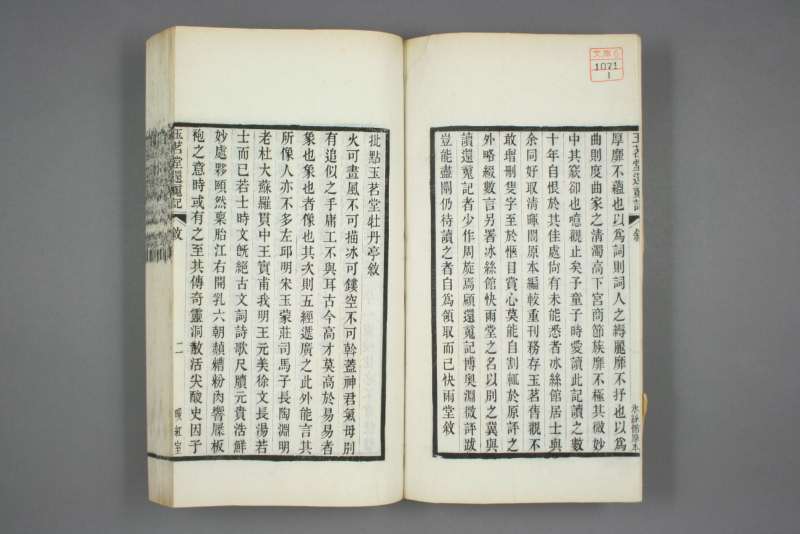 文庫6
1071
1
玉茗堂還魂記
敘
冰絲館原本
厚靡不蘊也以為詞則詞人之縟麗靡不抒也以為
曲則度曲家之清濁高下宮商節族靡不極其微妙
中其窾卻也噫觀止矣予童子時愛讀此記讀之數
十年自恨於其佳處尚有未能悉者冰絲館居士與
余同好取清暉閣原本編較重刊務存玉茗舊觀不
敢增刪隻字至於愜目賞心莫能自割輒於原評之
外略綴數言另署冰絲館快雨堂之名以別之冀與
讀還䰟記者少作周旋焉顧還䰟記博奧淵微評跋
豈能盡闡仍待讀之者自為領取而已快雨堂敘
批點玉茗堂牡丹亭敘
火可畫風不可描冰可鏤空不可斡蓋神君氣母別
有追似之手庸工不與耳古今高才莫高於易易者
象也象也者像也其次則五經遞廣之此外能言其
所像人亦不多左邱明宋玉蒙莊司馬子長陶淵明
老杜大蘇羅貫中王實甫我明王元美徐文長湯若
士而已若士時文旣絕古文詞詩歌尺牘元貴浩鮮
妙處夥頤然稟胎江右開乳六朝顏糟粉肉響屧板
袍之意時或有之至其傳奇靈洞散活尖酸史因子
玉茗堂還䰟記
敘
二
暖紅室